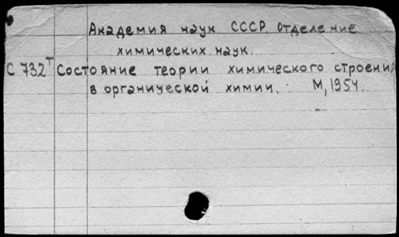 Академия наук СССР. Отделение
химических наук.
С 732т Состояние теории химического строени
в органической химии. М, 1954.